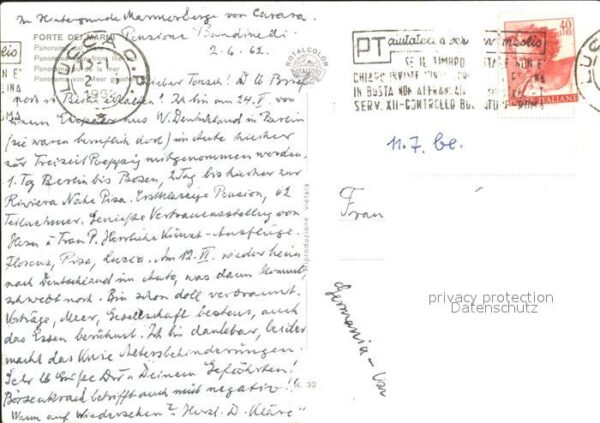 Im Hintergrunde Marmorberge von Carara.
FORTE DEI MARMI
Pensione Bandinelli
Panorama dal mare
Panorama from the
Panorama vu de la mer
Panorama von Meer
2.6.62.
ROTALCOLOR
LUCCA C.P.
2 6
1962
Lieber Tonsch! D. lb Brief
noch in Berlin erhalten! Ich bin am 24.V. von
einem Ehepaar aus W. Deutschland in Berlin
(sie waren beruflich dort) im Auto hierher
zur Freizeit Poeppig mitgenommen worden.
1. Tag Berlin bis Bozen, 2. Tag bis hierher zur
Riviera Nähe Pisa. Erstklassige Pension, 42
Teilnehmer. Genieße Vertrauensstellung von
Herrn u Frau P. Herrliche Kunst-Ausflüge.
Florenz, Pisa, Lucca. Am 12.VI. wieder heim
nach Deutschland im Auto, was dann kommt
schwebt noch. Bin schon doll verbrannt.
Vorträge, Meer, Gesellschaft bestens, auch
das Essen berühmt. Ich bin dankbar, leider
macht das Knie Altersbehinderungen.
Sehr lb Grüße Dir u Deinem Gefährten!
Börsenkrach betrifft auch mich negativ!
Wann auf Wiedersehen? Herzl. D. Kläre
Riproduzione vietata
N. 32
PT
aiutateci a servirvi meglio
SE IL TIMBRO POSTALE NON E'
CHIARO
IN BUSTA NON AFFRANCATA
SERV. XII-CONTROLLO
40
LIRE
POSTE ITALIANE
11.7. be.
Frau
Germania -
privacy protection
Datenschutz